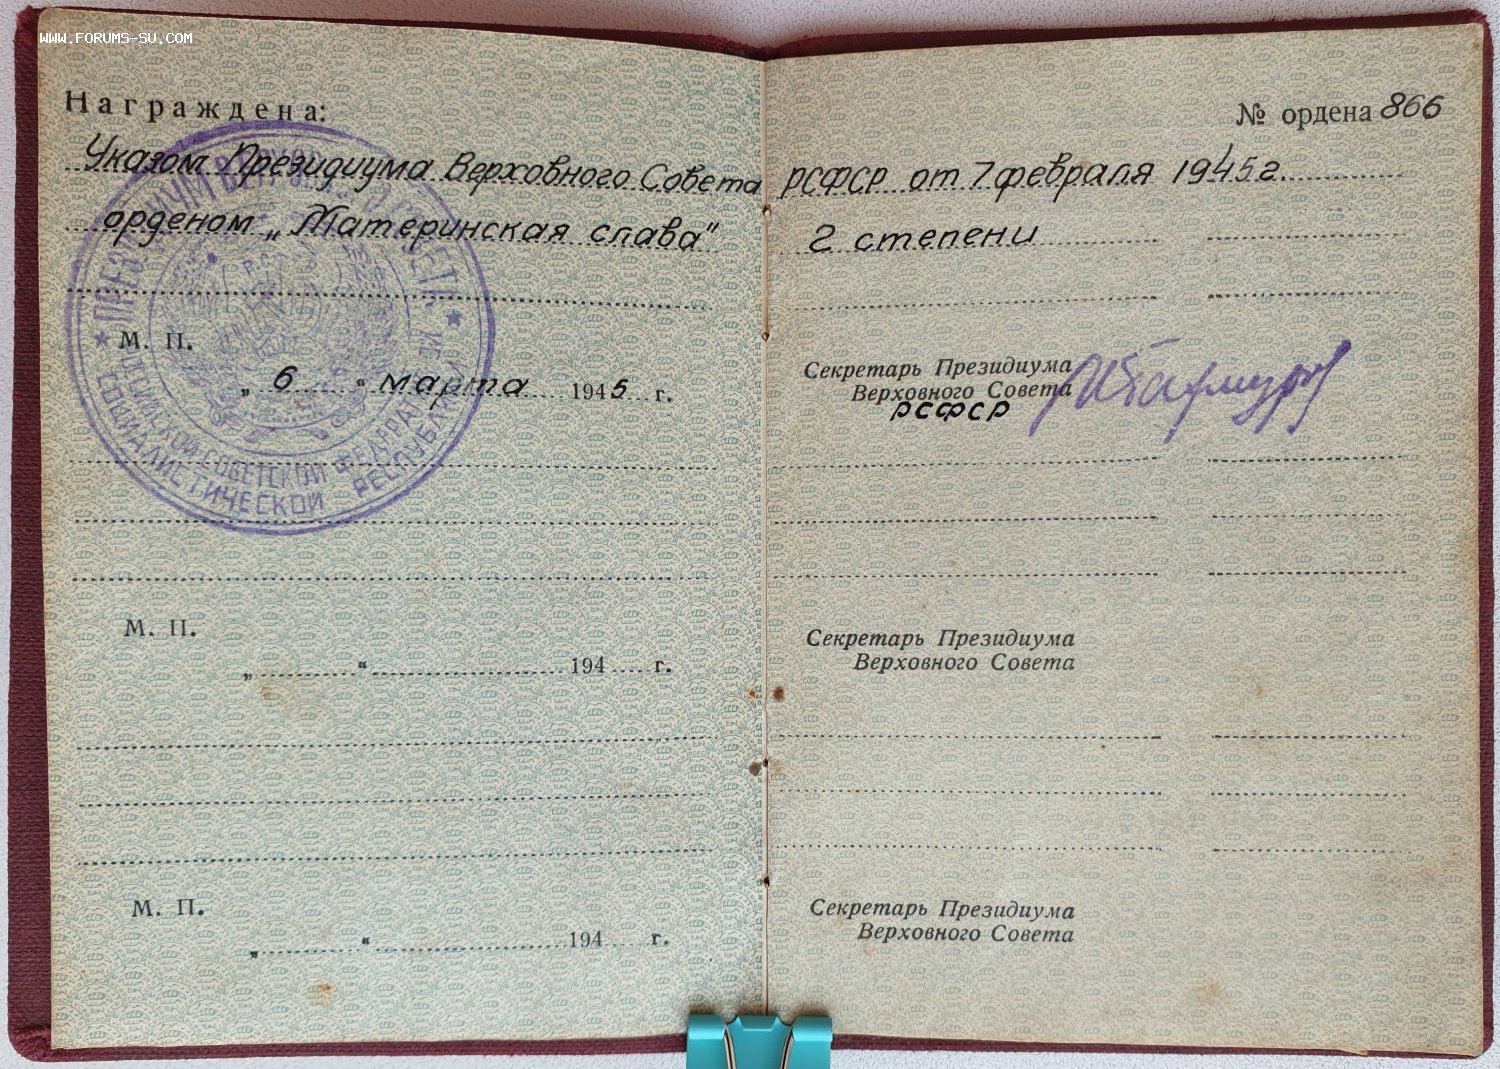 WWW.FORUMS-SU.COM
Награждена:
№ ордена 866
Указом Президиума Верховного Совета РСФСР от 7 февраля 1945 г.
орденом „Материнская слава" 2 степени
ПРЕЗИДИУМ ВЕРХОВНОГО СОВЕТА
РОССИЙСКОЙ СОВЕТСКОЙ ФЕДЕРАТИВНОЙ
СОЦИАЛИСТИЧЕСКОЙ РЕСПУБЛИКИ
М. П.
„ 6 “ марта 1945 г.
Секретарь Президиума
Верховного Совета
РСФСР
М. П.
„ “ 194 г.
Секретарь Президиума
Верховного Совета
М. П.
„ “ 194 г.
Секретарь Президиума
Верховного Совета